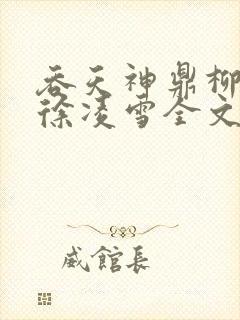 吞天神鼎柳
徐凌雪全文
威館長